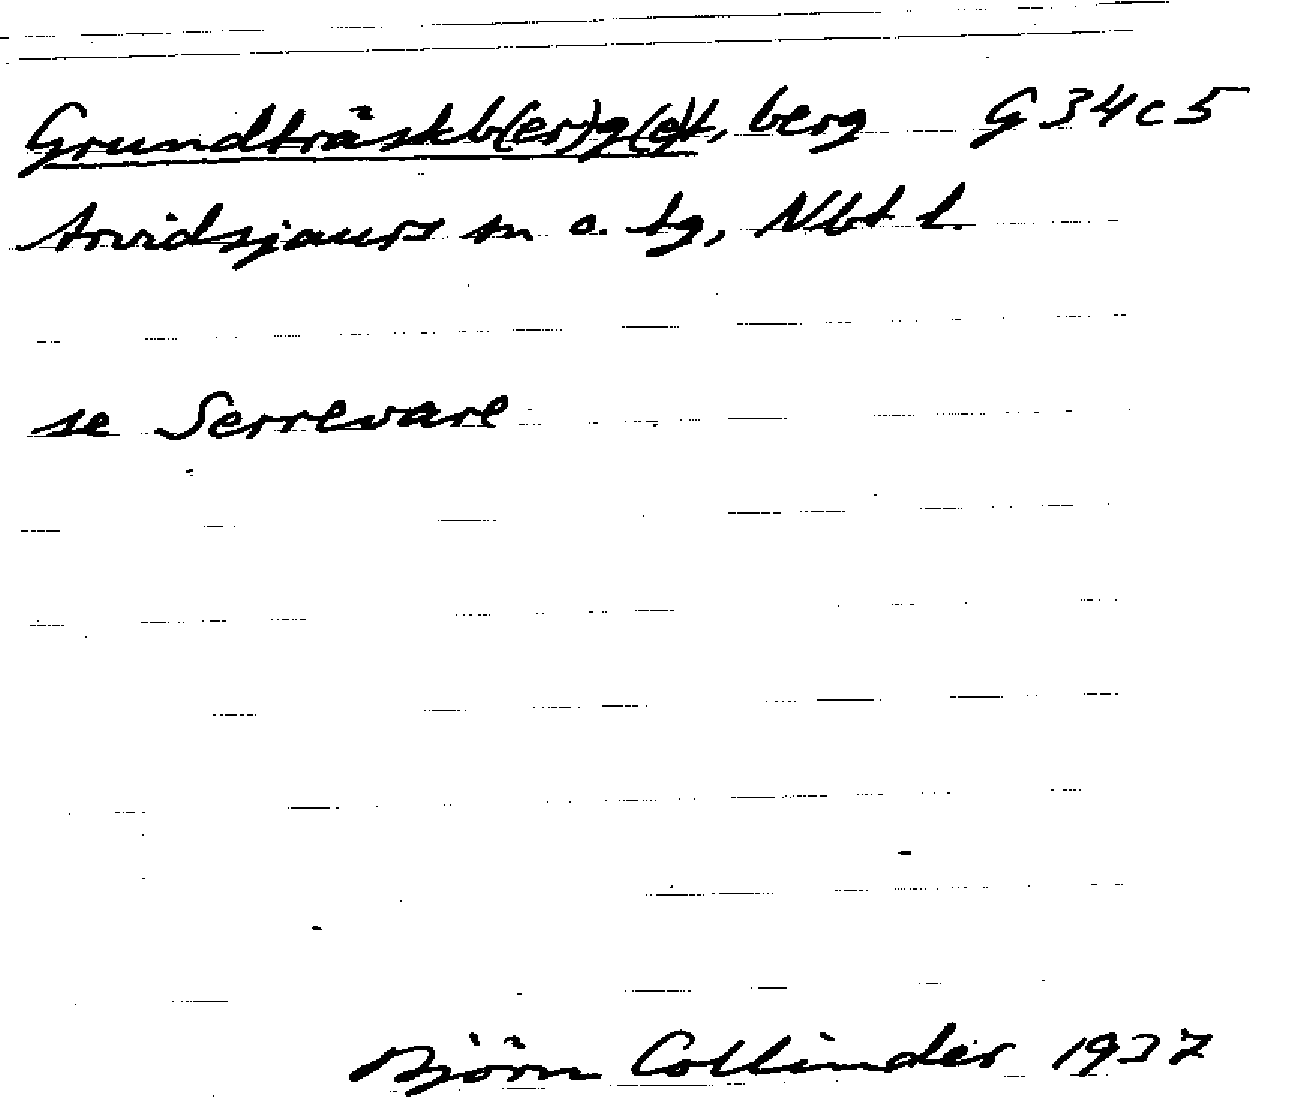 Grundträskb(er)g(e)t, berg G34c5
Arvidsjaurs sn o. tg, Nbt l.
se Serrevare
Björn Collinder 1937